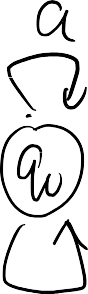 a
q₀